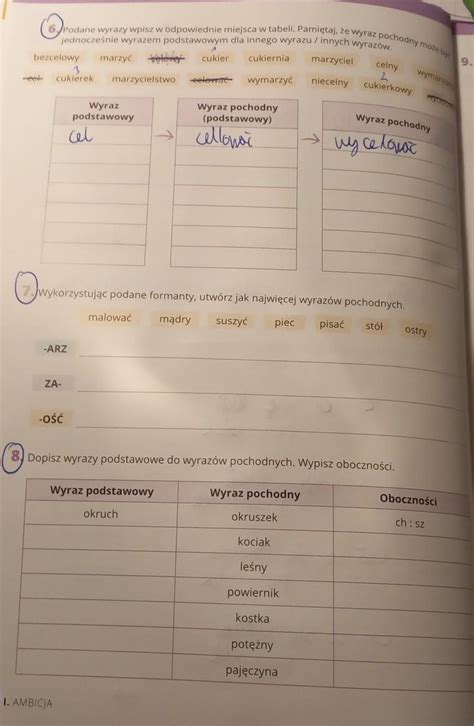 6. Podane wyrazy wpisz w odpowiednie miejsca w tabeli. Pamiętaj, że wyraz pochodny może być
jednocześnie wyrazem podstawowym dla innego wyrazu / innych wyrazów.
9.
bezcelowy marzyć cukier cukiernia marzyciel celny wymarzony
3 2
cel cukierek marzycielstwo celować wymarzyć niecelny cukierkowy
Wyraz podstawowy Wyraz pochodny (podstawowy) Wyraz pochodny
cel → celować → wycelować
7. Wykorzystując podane formanty, utwórz jak najwięcej wyrazów pochodnych.
malować mądry suszyć piec pisać stół ostry
-ARZ
ZA-
-OŚĆ
8. Dopisz wyrazy podstawowe do wyrazów pochodnych. Wypisz oboczności.
Wyraz podstawowy Wyraz pochodny Oboczności
okruch okruszek ch : sz
kociak
leśny
powiernik
kostka
potężny
pajęczyna
I. AMBICJA